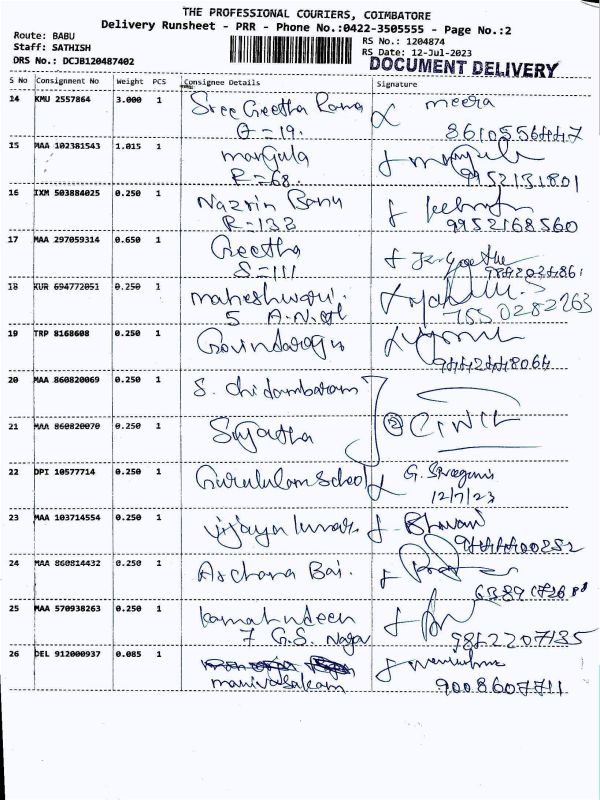 THE PROFESSIONAL COURIERS, COIMBATORE
Delivery Runsheet - PRR - Phone No.:0422-3505555 - Page No.:2
Route: BABU
Staff: SATHISH
DRS No.: DCJB120487402
RS No.: 1204874
RS Date: 12-Jul-2023
DOCUMENT DELIVERY
S No Consignment No Weight PCS Consignee Details Signature
14 KMU 2557864 3.000 1 Sree Geetha Rama meera
G = 19. 8610556447
15 MAA 102381543 1.015 1 manjula
R = 68. 9952131801
16 IXM 503884025 0.250 1 Nazrin Banu
R = 132 9952168560
17 MAA 297059314 0.650 1 Geetha
S = 111
18 KUR 694772051 0.250 1 maheshwari.
5 7550282263
19 TRP 8168608 0.250 1 Govindaraju
9442448064
20 MAA 860820069 0.250 1 S. Chidambaram
21 MAA 860820070 0.250 1 Sujatha
22 DPI 10577714 0.250 1 Gurukulam School G.
12/7/23
23 MAA 103714554 0.250 1 vijaya kumar Bhavani
24 MAA 860814432 0.250 1 Archana Bai.
25 MAA 570938263 0.250 1 kamaludeen
7 G.S. Nagar 9842207135
26 DEL 912000937 0.085 1
manivasakam 9008607711